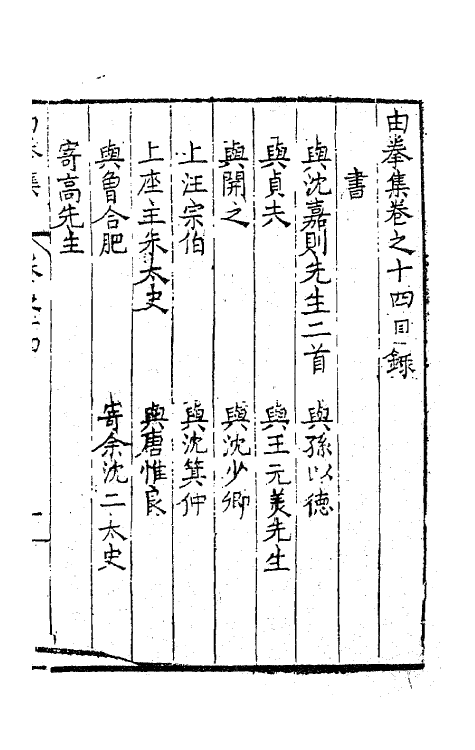 由拳集卷之十四目錄
書
與沈嘉則先生二首 與孫以德
與貞夫 與王元美先生
與開之 與沈少卿
上汪宗伯 與沈箕仲
上座主朱太史 與唐惟良
與魯合肥 寄余沈二太史
寄高先生